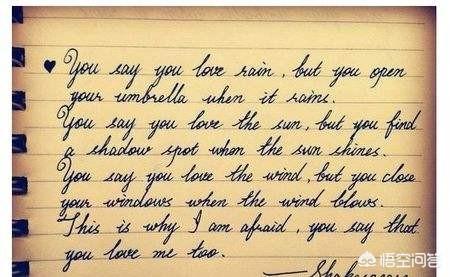 ♥ You say you love rain, but you open
your umbrella when it rains.
You say you love the sun, but you find
a shadow spot when the sun shines.
You say you love the wind, but you close
your windows when the wind blows.
This is why I am afraid, you say that
you love me too.
悟空问答